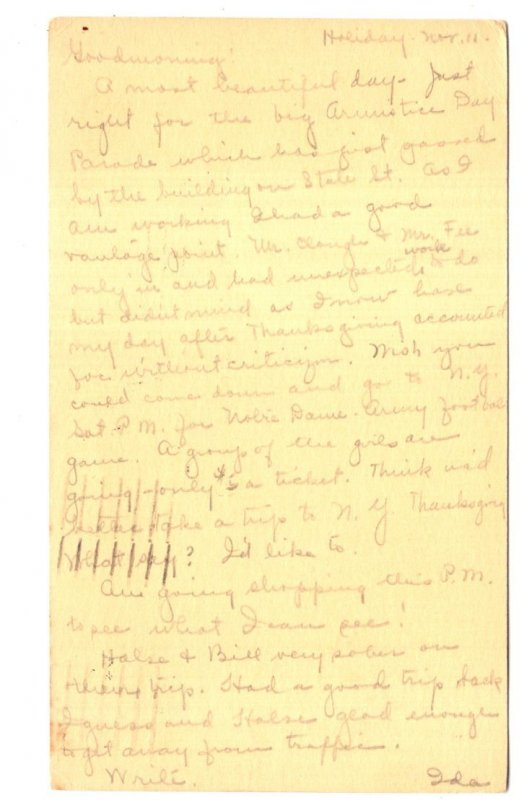 Holiday - Nov. 11.
Goodmorning!
A most beautiful day - just
right for the big Armistice Day
Parade which has just passed
by the building on State St. As I
am working I had a good
vantage point. Mr. Clough & Mr. Fee
only in and had unexpected work to do
but didn't mind as I now have
my day after Thanksgiving accounted
for without criticizm. Wish you
could come down and go to N.Y.
Sat. P.M. for Notre Dame - Army football
game. A group of the girls are
going - only $5 a ticket. Think we'd
better take a trip to N.Y. Thanksgiving
What say? I'd like to.
Am going shopping this P.M.
to see what I can see!
Halse & Bill very sober on
their trip. Had a good trip back
I guess and Halse glad enough
to get away from traffic.
Write. Ida